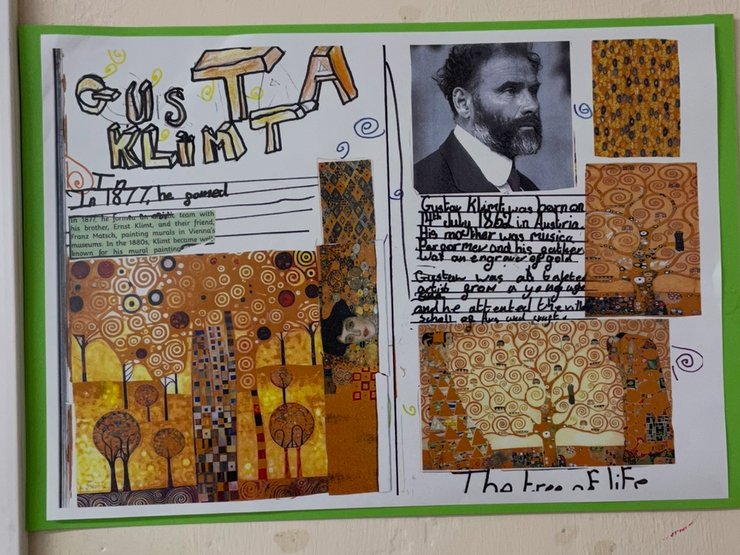 GUSTTA
KLIMT
In
In 1877, he gomed
In 1877, he formed a team with
his brother, Ernst Klimt, and their friend,
Franz Matsch, painting murals in Vienna's
museums. In the 1880s, Klimt became well
known for his mural painting
Gustav Klimt was born on
14th July 1862 in Austria
His mother was musica
Performer and his gather
was an engraver of gold.
Gustav was at
artist grom a young age
and he attented the
Scholl of
The tree of life